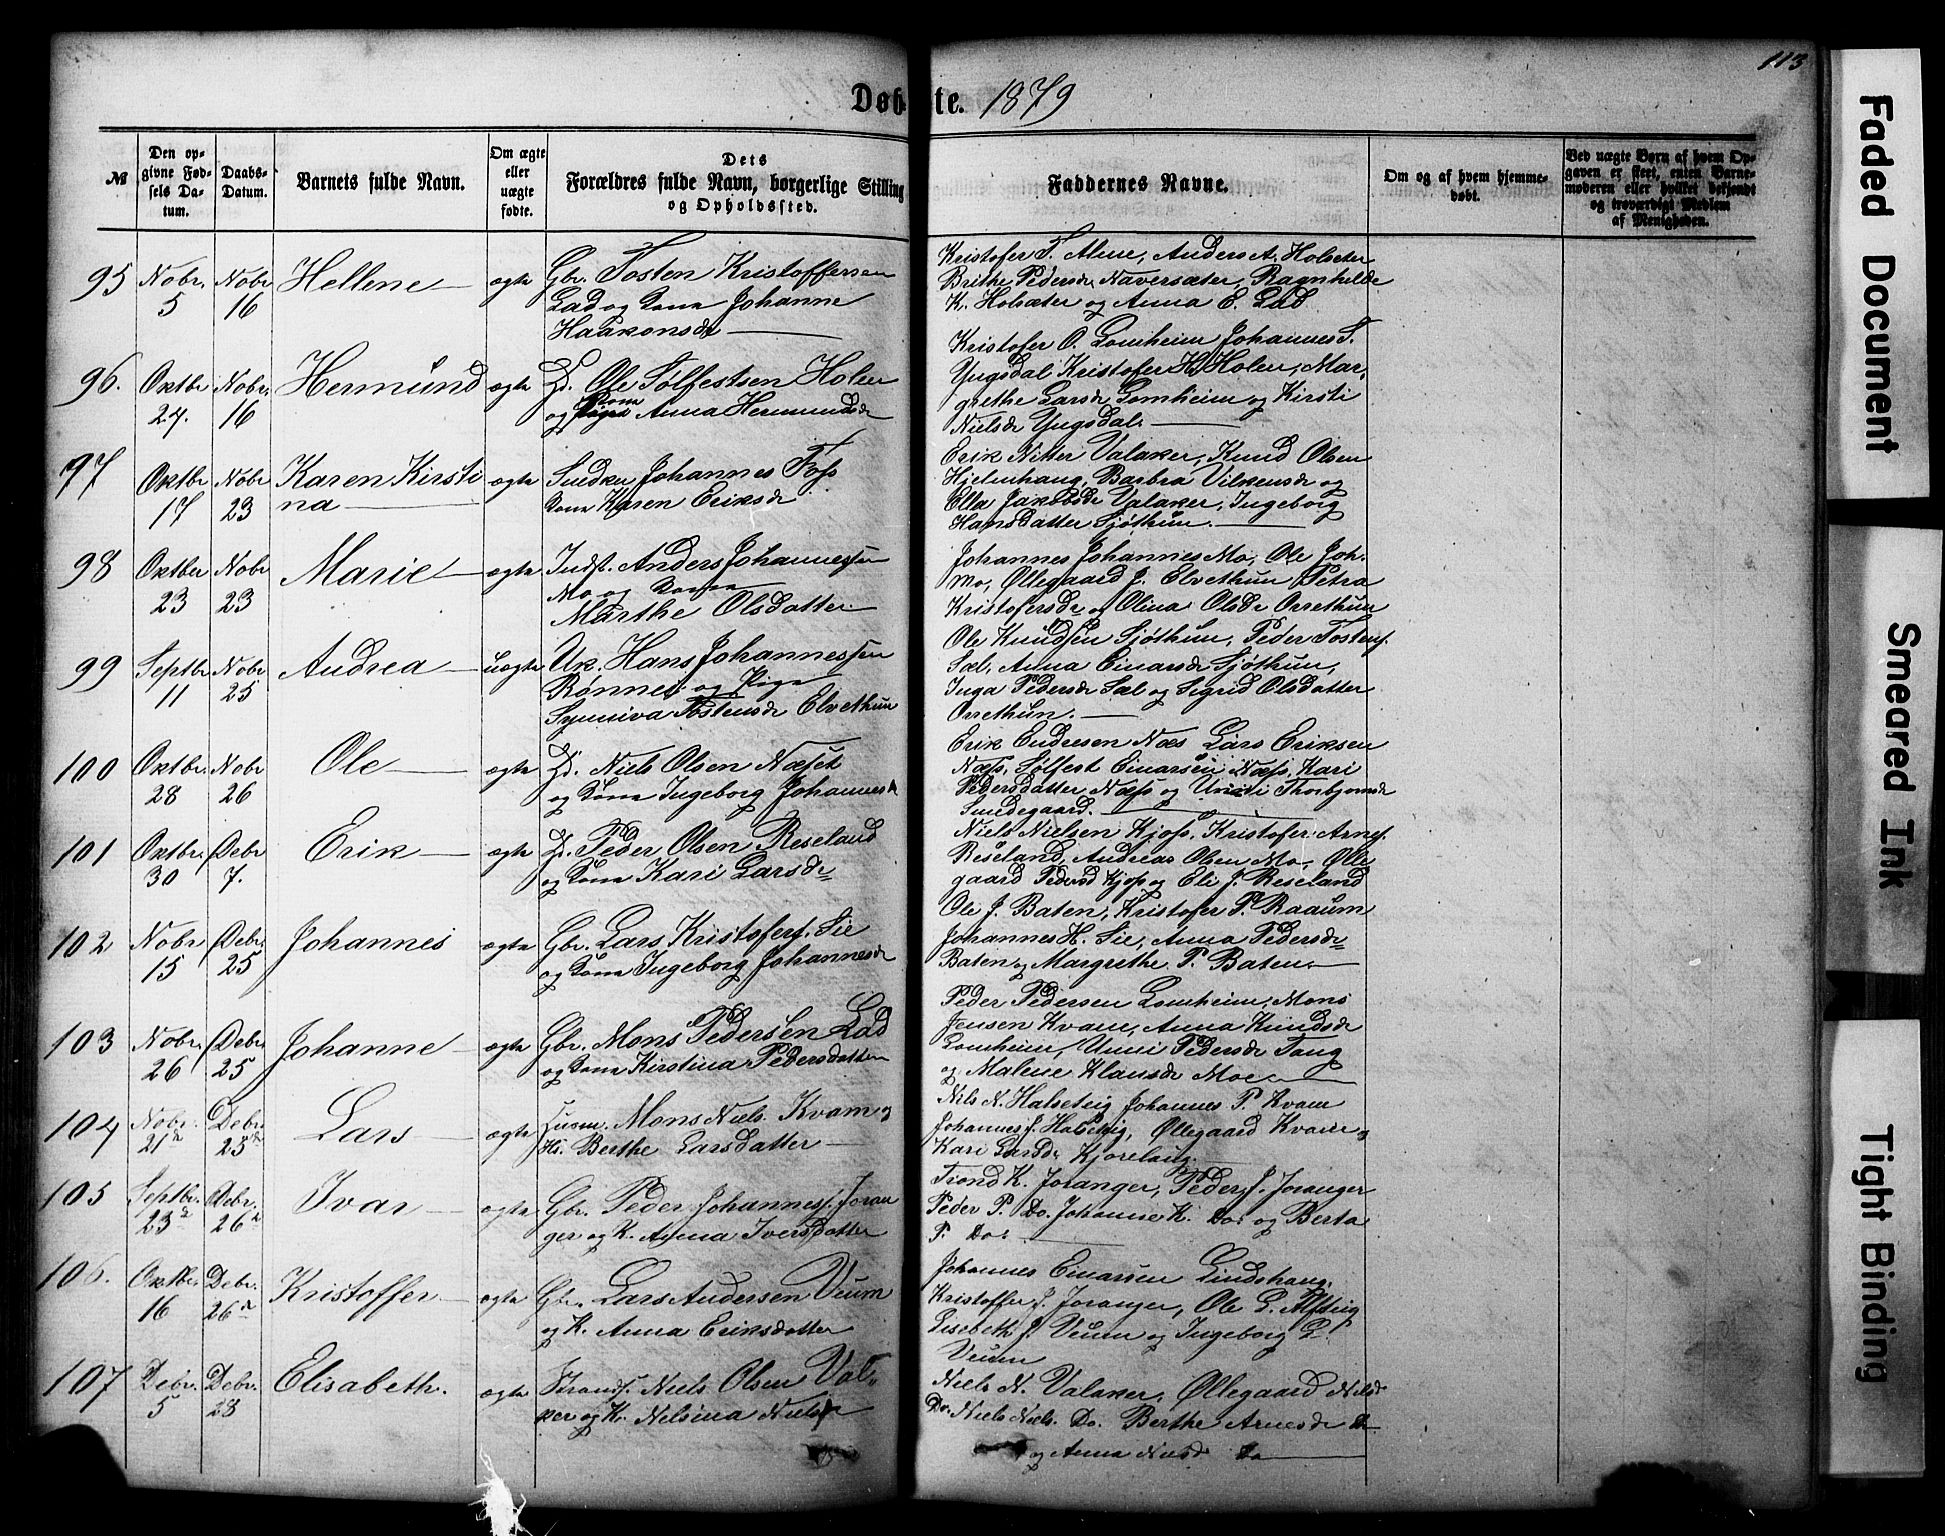 113
Døbte. 1879
№
Den opgivne Fødsels Datum.
Daabs-Datum.
Barnets fulde Navn.
Om ægte eller uægte fødte.
Dets Forældres fulde Navn, borgerlige Stilling og Opholdssted.
Faddernes Navne.
Om og af hvem hjemmedøbt.
Ved uægte Børn af hvem Opgaven er skeet, enten Barnemoderen eller hvilket bekjendt og troværdigt Medlem af Menigheden.
95 Nobr. 5 Nobr 16 Hellene ægte
Gbr. Tosten Kristoffersen
Lad og Kona Johanne
Haakonsdr
Kristofer T. Alme, Anders A. Holseter
Brithe Pedersdr Naversæter, Ragnhilde
K. Holsæter og Anna E. Lad
96. Oktbr 27. Nobr. 16 Hermund ægte
Gd. Ole Sølfestsen Holen
og Kona Anna Hermundsdr
Kristofer O. Lomheim Johannes S.
Yngsdal Kristofer H. Holen, Mar-
grethe Larsdr Lomheim og Kirsti
Nielsdr Yngsdal.
97 Oktbr 17 Nobr 23 Karen Kirsti
na ægte
Snedker Johannes Foss
Kona Karen Eriksdr
Erik Nitter Valaker, Knud Olsen
Hjelmhaug, Barbra Vilkensdr og
Ella Jakobsdr Valaker, Ingeborg
Hansdatter Sjøthun.
98 Oktber 23 Nobr 23 Marie ægte
Indst. Anders Johannessen
Mo og Kona
Marthe Olsdatter
Johannes Johannes Mo, Ole Joh.
Mo, Øllegaard J. Elvethun Petra
Kristofersdr og Olina Olsdr Orrethun
99 Septbr 11 Nobr 25 Andrea uægte
Uk. Hans Johannessen
Rønnei og Pige
Synneva Tostensdr Elvethun
Ole Knudsen Sjøthun, Peder Tostens.
Sæl, Anna Einarsdr Sjøthun,
Inga Pedersdr Sæl og Sigrid Olsdatter
Orrethun.
100 Oktbr. 28 Nobr 26 Ole ægte
Gd. Niels Olsen Næset
og Kona Ingeborg Johannesdr
Erik Endresen Næs Lars Eriksen
Næss, Sølfest Einarsen Næss, Kari
Pedersdatter Næss og Unni Thorbjornsdr
Sundegaard.
101 Oktbr. 30 Debr 7. Erik ægte
Gd. Peder Olsen Reseland
og Kona Kari Larsdr
Niels Nielsen Kjoss, Kristofer Arnes.
Reseland, Andreas Olsen Mo, Ølle
gaard Pedersd Kjoss og Eli J. Reseland
102 Nobr 15 Debr. 25 Johannes ægte
Gbr. Lars Kristofers. Sie
og Kona Ingeborg Johannesdr
Ole J. Baten, Kristofer P. Raaum
Johannes H. Sie, Anna Pedersdr
Baten og Margrethe P. Baten
103 Nobr. 26 Debr. 25 Johanne ægte
Gbr. Mons Pedersen Lad
og Kona Kirstina Pedersdatter
Peder Pedersen Lomheim, Mons
Jensen Kvam, Anna Knudsdr
Lomheim, Unni Pedersdr Tang
og Malene Klausdr Moe
104 Nobr. 21de Debr. 25de Lars ægte
Husm. Mons Niels. Kvam og
H. Berthe Larsdatter
Nils N. Halsetvig Johannes P. Kvam
Johannes J. Halsetvig, Øllegaard Kvam og
Kari Larsdr Kjorelaug
105 Septbr. 23de Debr. 26de Ivar ægte
Gbr. Peder Johanness. Joran
ger og K. Anna Iversdatter
Trond K. Joranger, Peder J. Joranger
Peder P. Do. Johanne K. Do. og Berta
P. Do.
106. Oktber. 16 Debr. 26de Kristoffer ægte
Gbr. Lars Andersen Veum
og K. Anna Eriksdatter
Johannes Einarsen Lindshaug,
Kristoffer J. Joranger, Ole L. Alsvig
Lisebeth J. Veum og Ingeborg L.
Veum
107 Debr. 5 Debr. 28 Elisabeth. ægte
Strands. Niels Olsen Val-
ker og K. Nelsina Nielsdr
Niels N. Valaker, Øllegaard Nilsdr
Do. Niels Niels. Do. Berthe Arnesdr Do
og Anna Nielsdr Do
Faded Document
Smeared Ink
Tight Binding